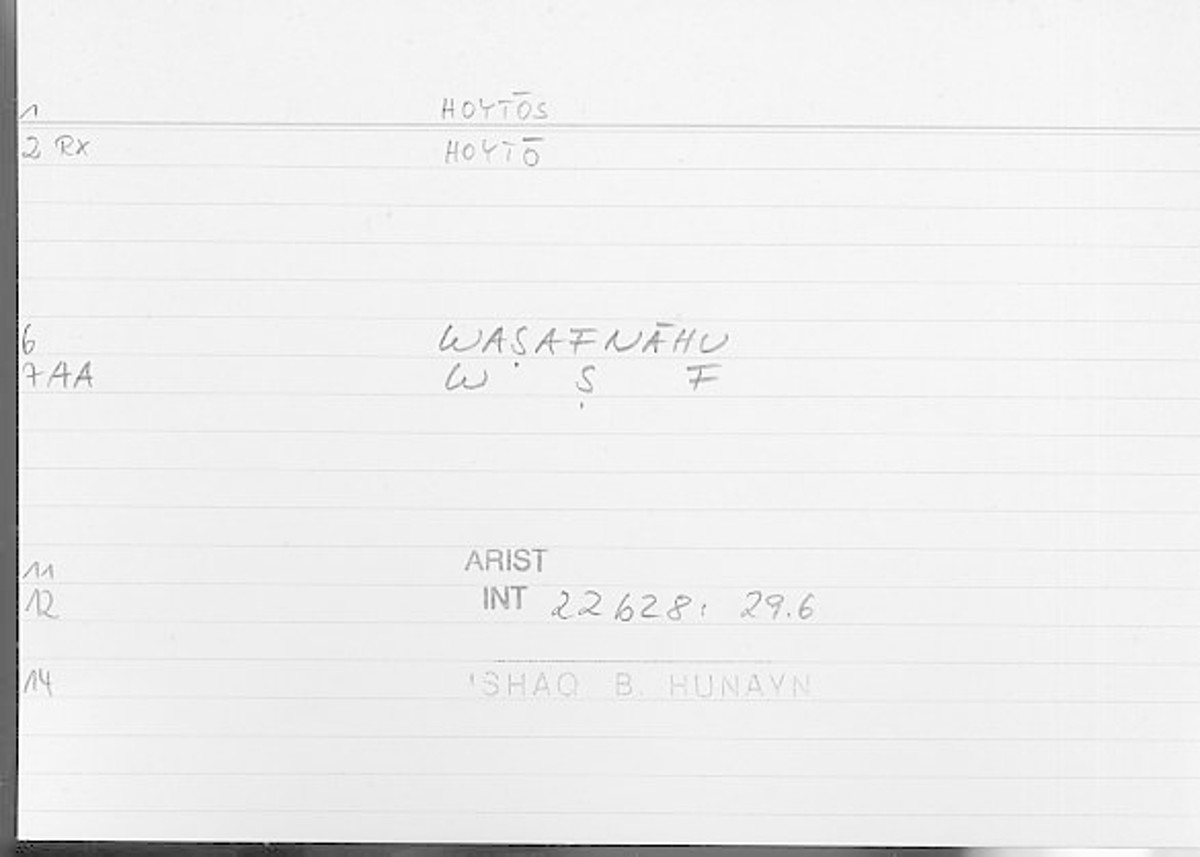 1 HOYTŌS
2 RX HOYTŌ
6 WAṢAFNĀHU
7 AA W Ṣ F
11 ARIST
12 INT 22628: 29.6
14 'SHAQ B. HUNAYN